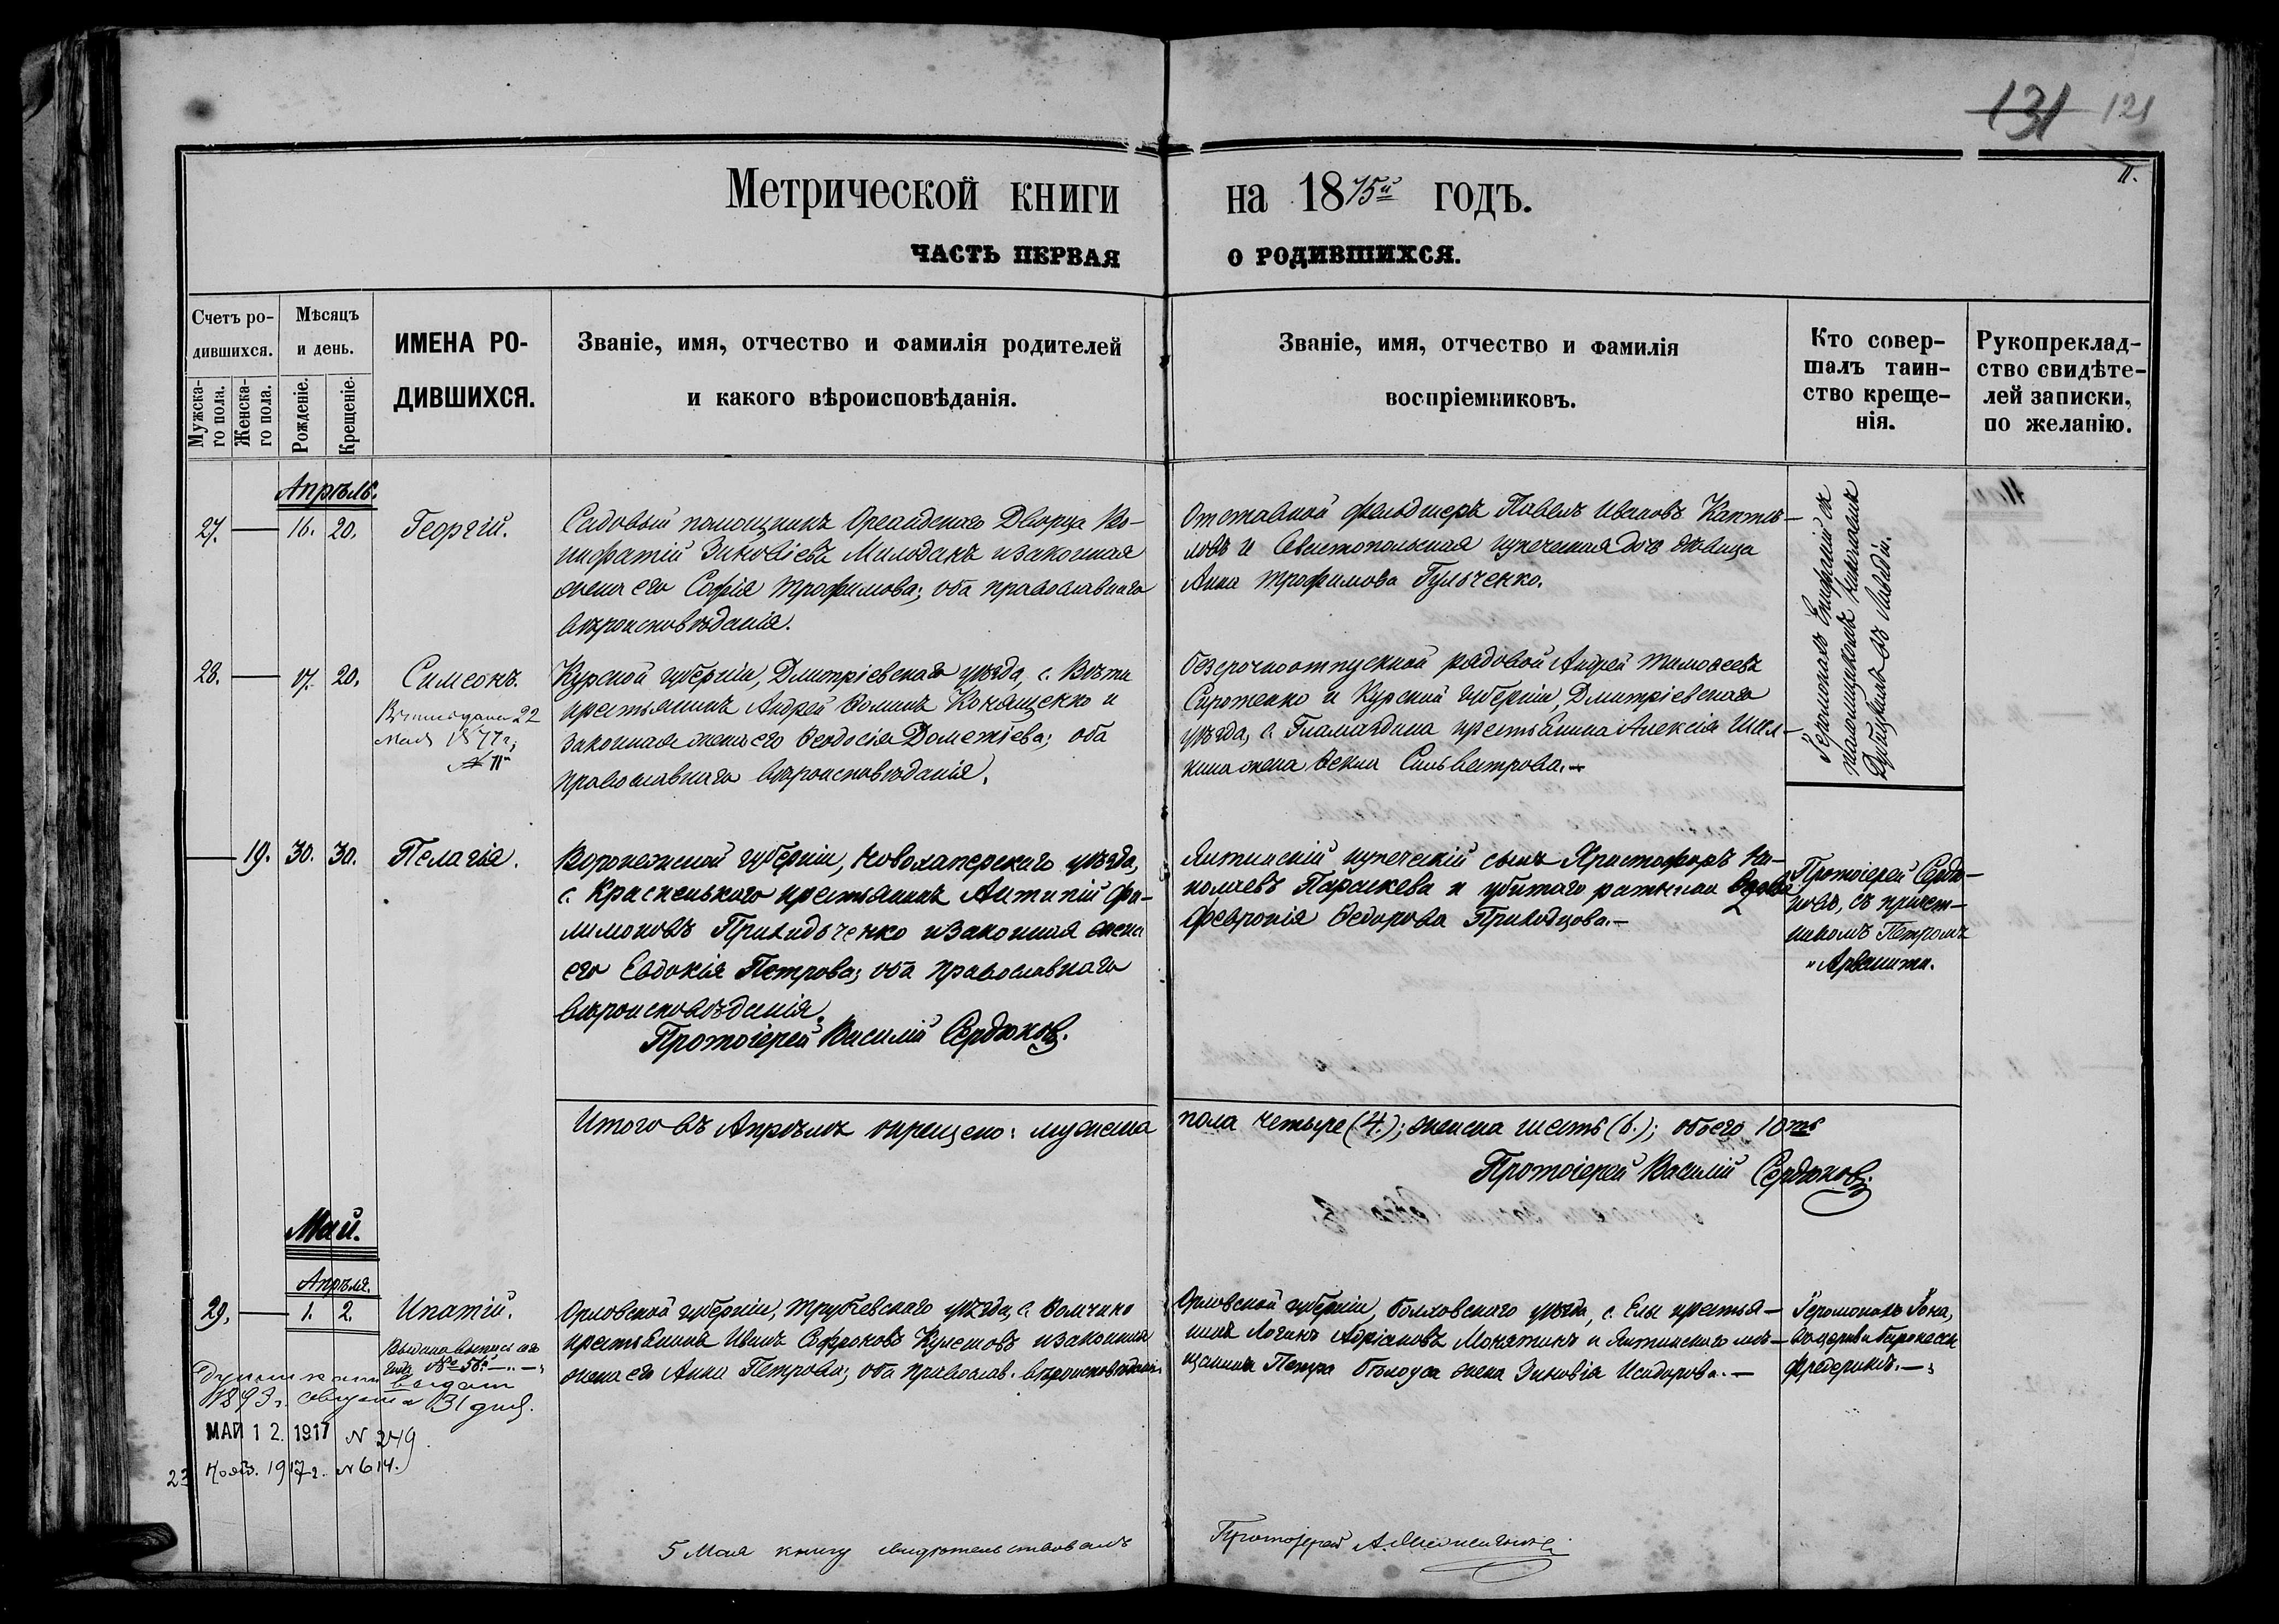 131 121
11.
Метрической книги на 1875й годъ.
ЧАСТЬ ПЕРВАЯ О РОДИВШИХСЯ.
Счетъ ро-
дившихся.
Мужска-
го пола.
Женска-
го пола.
Мѣсяцъ
и день.
Рожденіе.
Крещеніе.
ИМЕНА РО-
ДИВШИХСЯ.
Званіе, имя, отчество и фамилія родителей
и какого вѣроисповѣданія.
Званіе, имя, отчество и фамилія
воспріемниковъ.
Кто совер-
шалъ таин-
ство креще-
нія.
Рукопреклад-
ство свидѣте-
лей записки,
по желанію.
Апрѣль.
27. — 16. 20. Георгій.
Садовый помощникъ Ореандскаго Дворца Во-
нифатій Зиновіевъ Мильдакъ и законная
жена его Софія Трофимова; оба православнаго
вѣроисповѣданія.
Отставной фельдшеръ Павелъ Ивановъ
ловъ и Севастопольская купеческая дочь дѣвица
Анна Трофимова Гульченко.
Іеромонахъ Епифаній съ
Дубицкимъ въ Ливадіи.
28. — 17. 20. Симеонъ.
22
Мая 1877 г.
№ 11
Курской губерніи, Дмитріевскаго уѣзда, с.
крестьянинъ Андрей Ѳоминъ и
законная жена его Ѳеодосія Дометіева; оба
православнаго вѣроисповѣданія.
Безсрочноотпускной рядовой Андрей Тимоѳеевъ
Сиротенко и Курской губерніи, Дмитріевскаго
уѣзда, с. крестьянина Алексія Шел-
кина жена Ѳекла Сильвестрова. —
— 19. 30. 30. Пелагія.
Воронежской губерніи, Новохаперскаго уѣзда,
с. Красненького крестьянинъ Антипій Фи-
лимоновъ Приходьченко и законная жена
его Евдокія Петрова; оба православнаго
вѣроисповѣданія.
Протоіерей Василій Сердюковъ.
Ялтинскій купеческій сынъ Христофоръ Ни-
колаевъ Параскева и убитаго ратника вдова
Февронія Ѳедорова Приходцова. —
Протоіерей Сердю-
ковъ, съ причет-
никомъ Петромъ
Арванити.
Итого въ Апрѣлѣ окрещено: мужеска пола четыре (4.); женска шесть (6.); обоего 10ть
Протоіерей Василій Сердюковъ.
Май.
Апрѣля.
29. — 1. 2. Ипатій.
Орловской губерніи, Трубчевскаго уѣзда, с.
крестьянинъ Иванъ Софроновъ Кулешовъ и законная
жена его Анна Петрова; оба православ. вѣроисповѣданія.
Орловской губерніи, Болховскаго уѣзда, с. крестья-
нинъ Логинъ Адріановъ и Ялтинскаго мѣ-
щанина Петра Бѣлоуса жена Зиновія Исидорова. —
Іеромонахъ Іона,
съ фрегата
выдана
1893 г. августа 31 дня.
МАЙ 12. 1917 N 249.
23 Нояб. 1917 г. N 614.
5 Мая книгу свидѣтельствовалъ Протоіерей